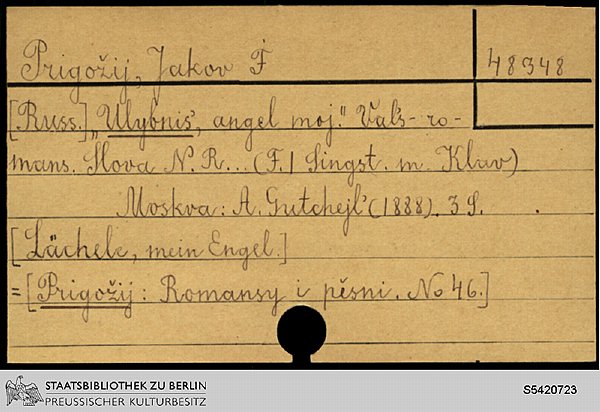 Prigožij, Jakov F. 48348
[Russ.] „Ulybnis', angel moj." Val's-ro-
mans. Slova N. R... (F. 1 Singst. m. Klav)
Moskva: A. Gutchejl' (1888). 3 S.
[Lächele, mein Engel.]
=[Prigožij: Romansy i pěsni. No 46.]
STAATSBIBLIOTHEK ZU BERLIN
PREUSSISCHER KULTURBESITZ
S5420723